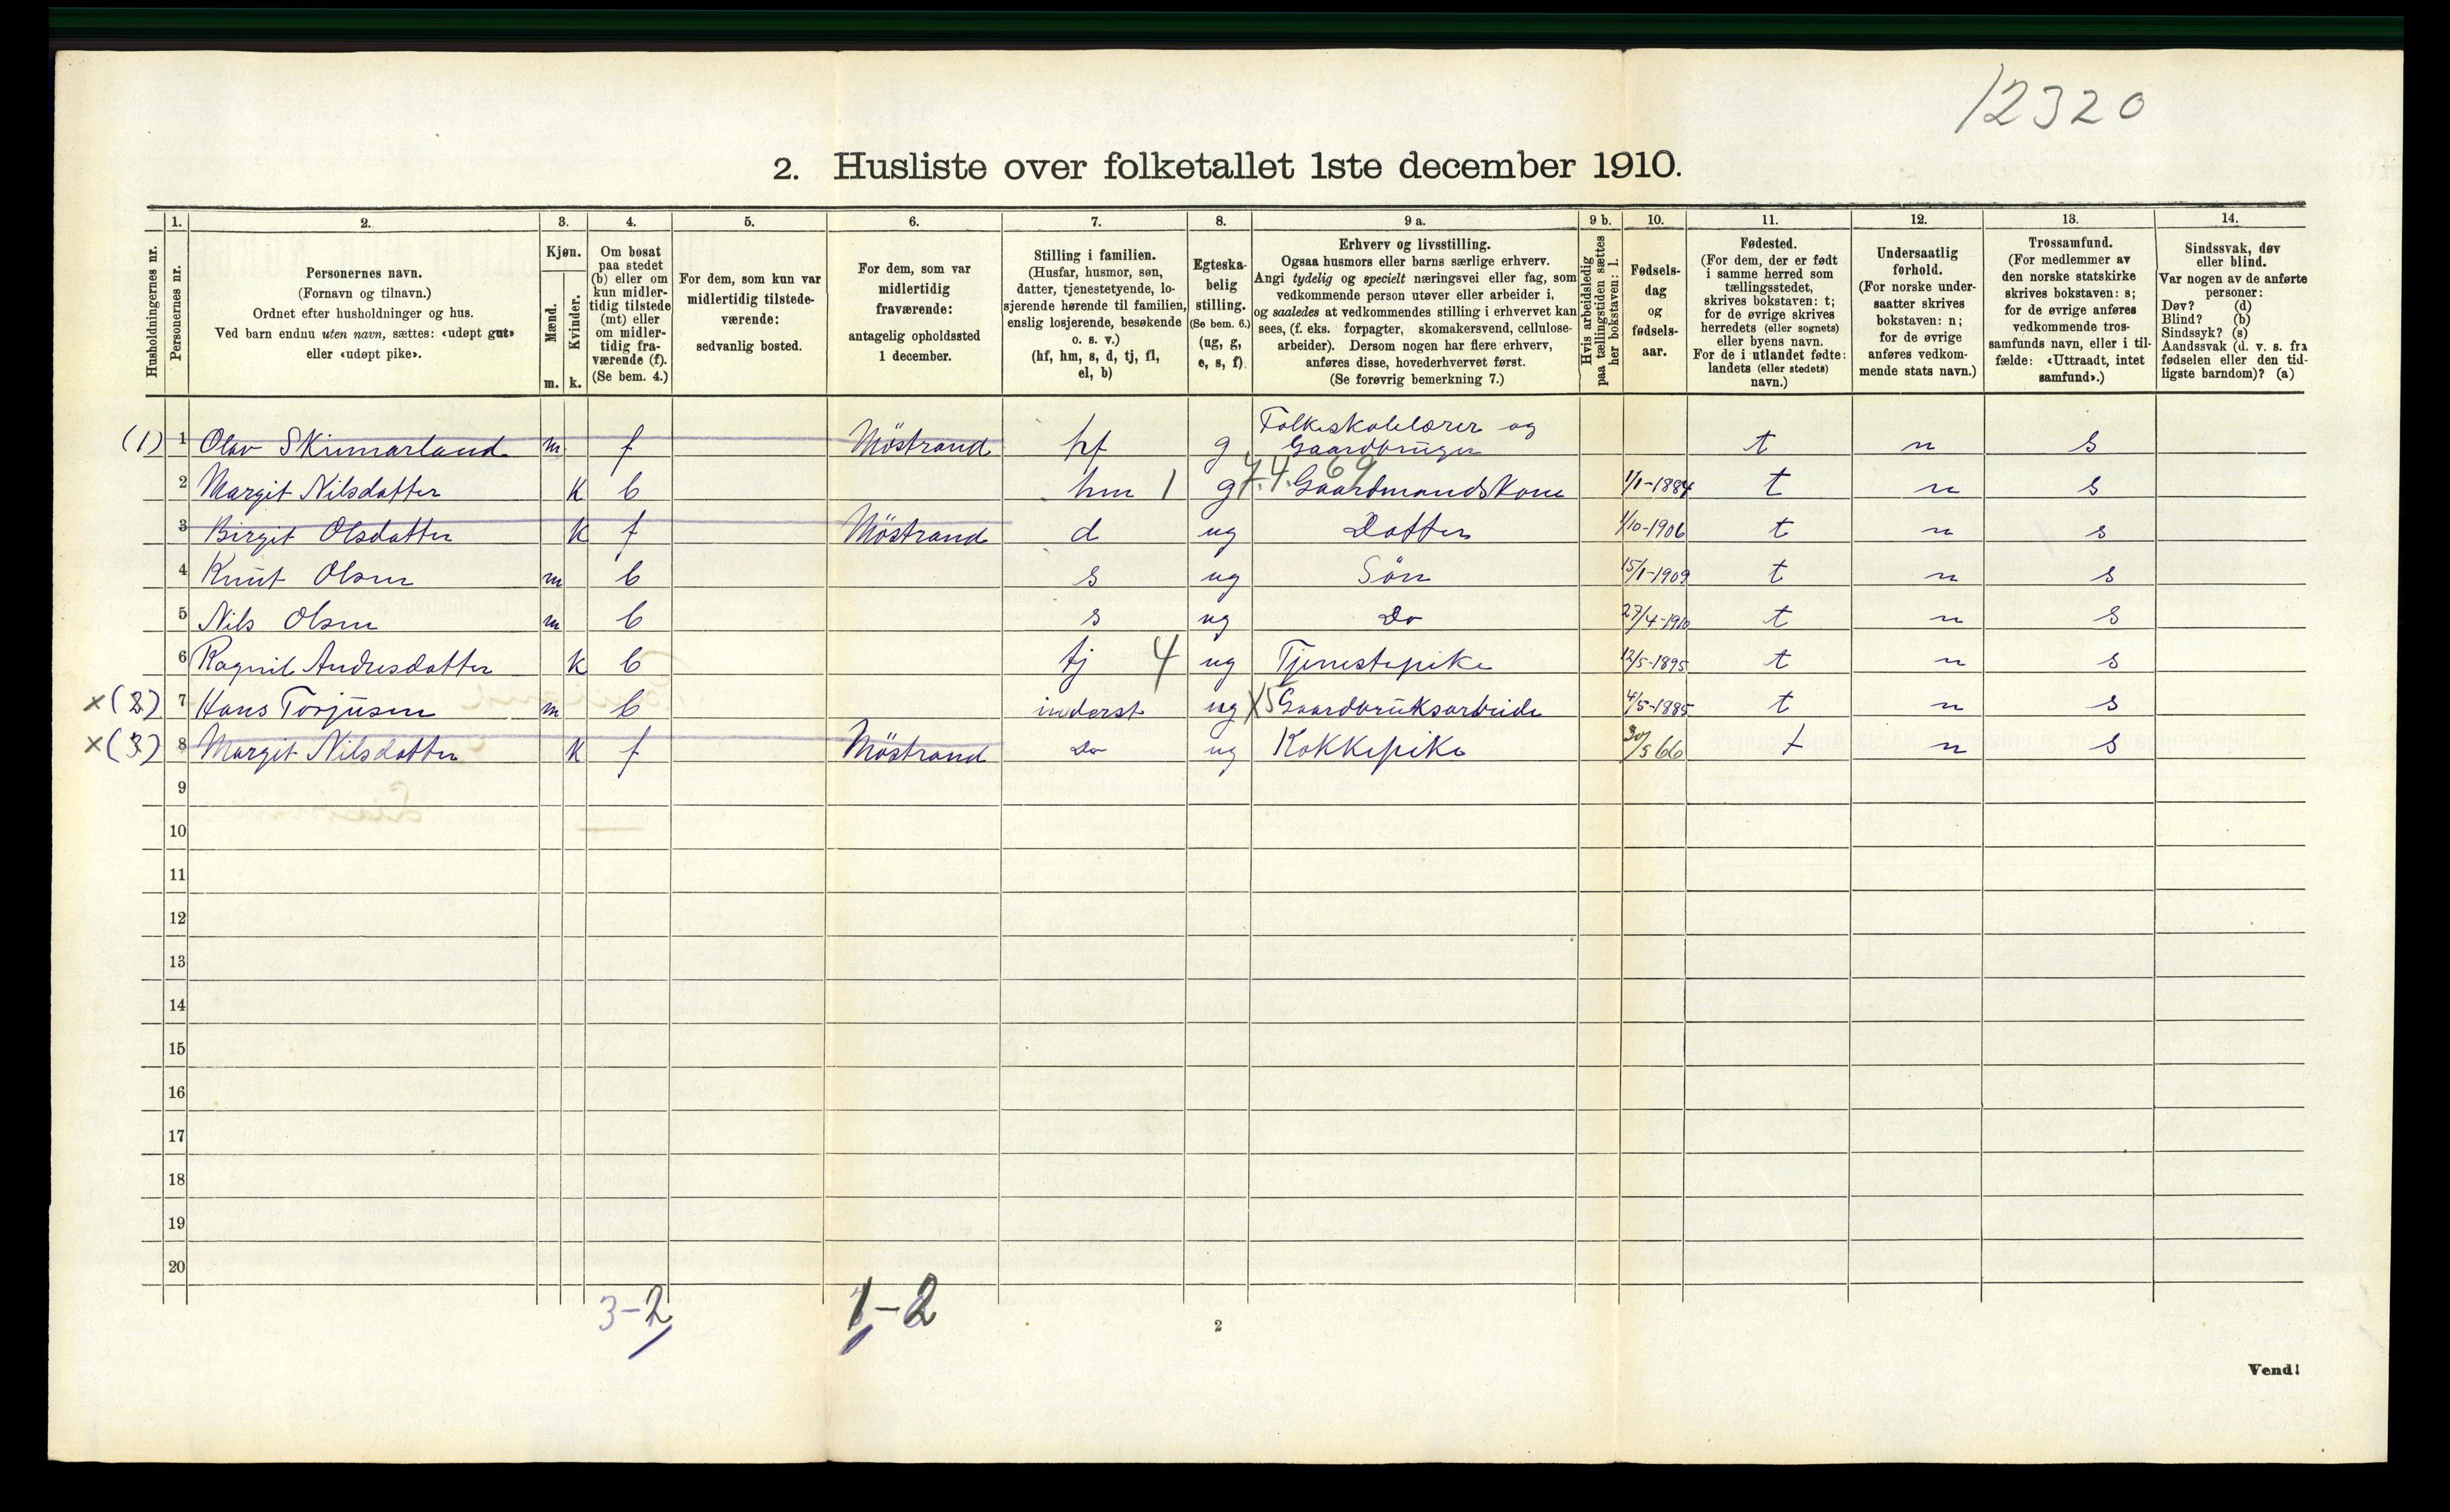 12320
2. Husliste over folketallet 1ste december 1910.
Husholdningernes nr.
1. Personernes nr.
2. Personernes navn.
(Fornavn og tilnavn.)
Ordnet efter husholdninger og hus.
Ved barn endnu uten navn, sættes: «udøpt gut»
eller «udøpt pike».
3. Kjøn.
Mænd. m.
Kvinder. k.
4. Om bosat
paa stedet
(b) eller om
kun midler-
tidig tilstede
(mt) eller
om midler-
tidig fra-
værende (f).
(Se bem. 4.)
5. For dem, som kun var
midlertidig tilstede-
værende:
sedvanlig bosted.
6. For dem, som var
midlertidig
fraværende:
antagelig opholdssted
1 december.
7. Stilling i familien.
(Husfar, husmor, søn,
datter, tjenestetyende, lo-
sjerende hørende til familien,
enslig losjerende, besøkende
o. s. v.)
(hf, hm, s, d, tj, fl,
el, b)
8. Egteska-
belig
stilling.
(Se bem. 6.)
(ug, g,
e, s, f)
9 a. Erhverv og livsstilling.
Ogsaa husmors eller barns særlige erhverv.
Angi tydelig og specielt næringsvei eller fag, som
vedkommende person utøver eller arbeider i,
og saaledes at vedkommendes stilling i erhvervet kan
sees, (f. eks. forpagter, skomakersvend, cellulose-
arbeider). Dersom nogen har flere erhverv,
anføres disse, hovederhvervet først.
(Se forøvrig bemerkning 7.)
9 b. Hvis arbeidsledig
paa tællingstiden sættes
her bokstaven: l.
10. Fødsels-
dag
og
fødsels-
aar.
11. Fødested.
(For dem, der er født
i samme herred som
tællingsstedet,
skrives bokstaven: t;
for de øvrige skrives
herredets (eller sognets)
eller byens navn.
For de i utlandet fødte:
landets (eller stedets)
navn.)
12. Undersaatlig
forhold.
(For norske under-
saatter skrives
bokstaven: n;
for de øvrige
anføres vedkom-
mende stats navn.)
13. Trossamfund.
(For medlemmer av
den norske statskirke
skrives bokstaven: s;
for de øvrige anføres
vedkommende tros-
samfunds navn, eller i til-
fælde: «Uttraadt, intet
samfund».)
14. Sindssvak, døv
eller blind.
Var nogen av de anførte
personer:
Døv? (d)
Blind? (b)
Sindssyk? (s)
Aandssvak (d. v. s. fra
fødselen eller den tid-
ligste barndom)? (a)
(1) 1 Olav Skinnarland m f Möstrand hf g Folkeskolelærer og Gaardbruger t n s
2 Margit Nilsdatter k b hm 1 g 7.4.69 Gaardmandskone 1/1-1884 t n s
3 Birgit Olsdatter k f Möstrand d ug Datter 1/10-1906 t n s
4 Knut Olsen m b s ug Sön 15/1-1909 t n s
5 Nils Olsen m b s ug Do 27/4-1910 t n s
6 Ragnil Andresdatter k b tj 4 ug Tjenestepike 12/5-1895 t n s
x (2) 7 Hans Torjusen m b inderst ug X5 Gaardbruksarbeide 4/5-1885 t n s
x (3) 8 Margit Nilsdatter k f Möstrand Do ug Kokkepike 30/5 66 t n s
9
10
11
12
13
14
15
16
17
18
19
20
3-2
1-2
2
Vend!